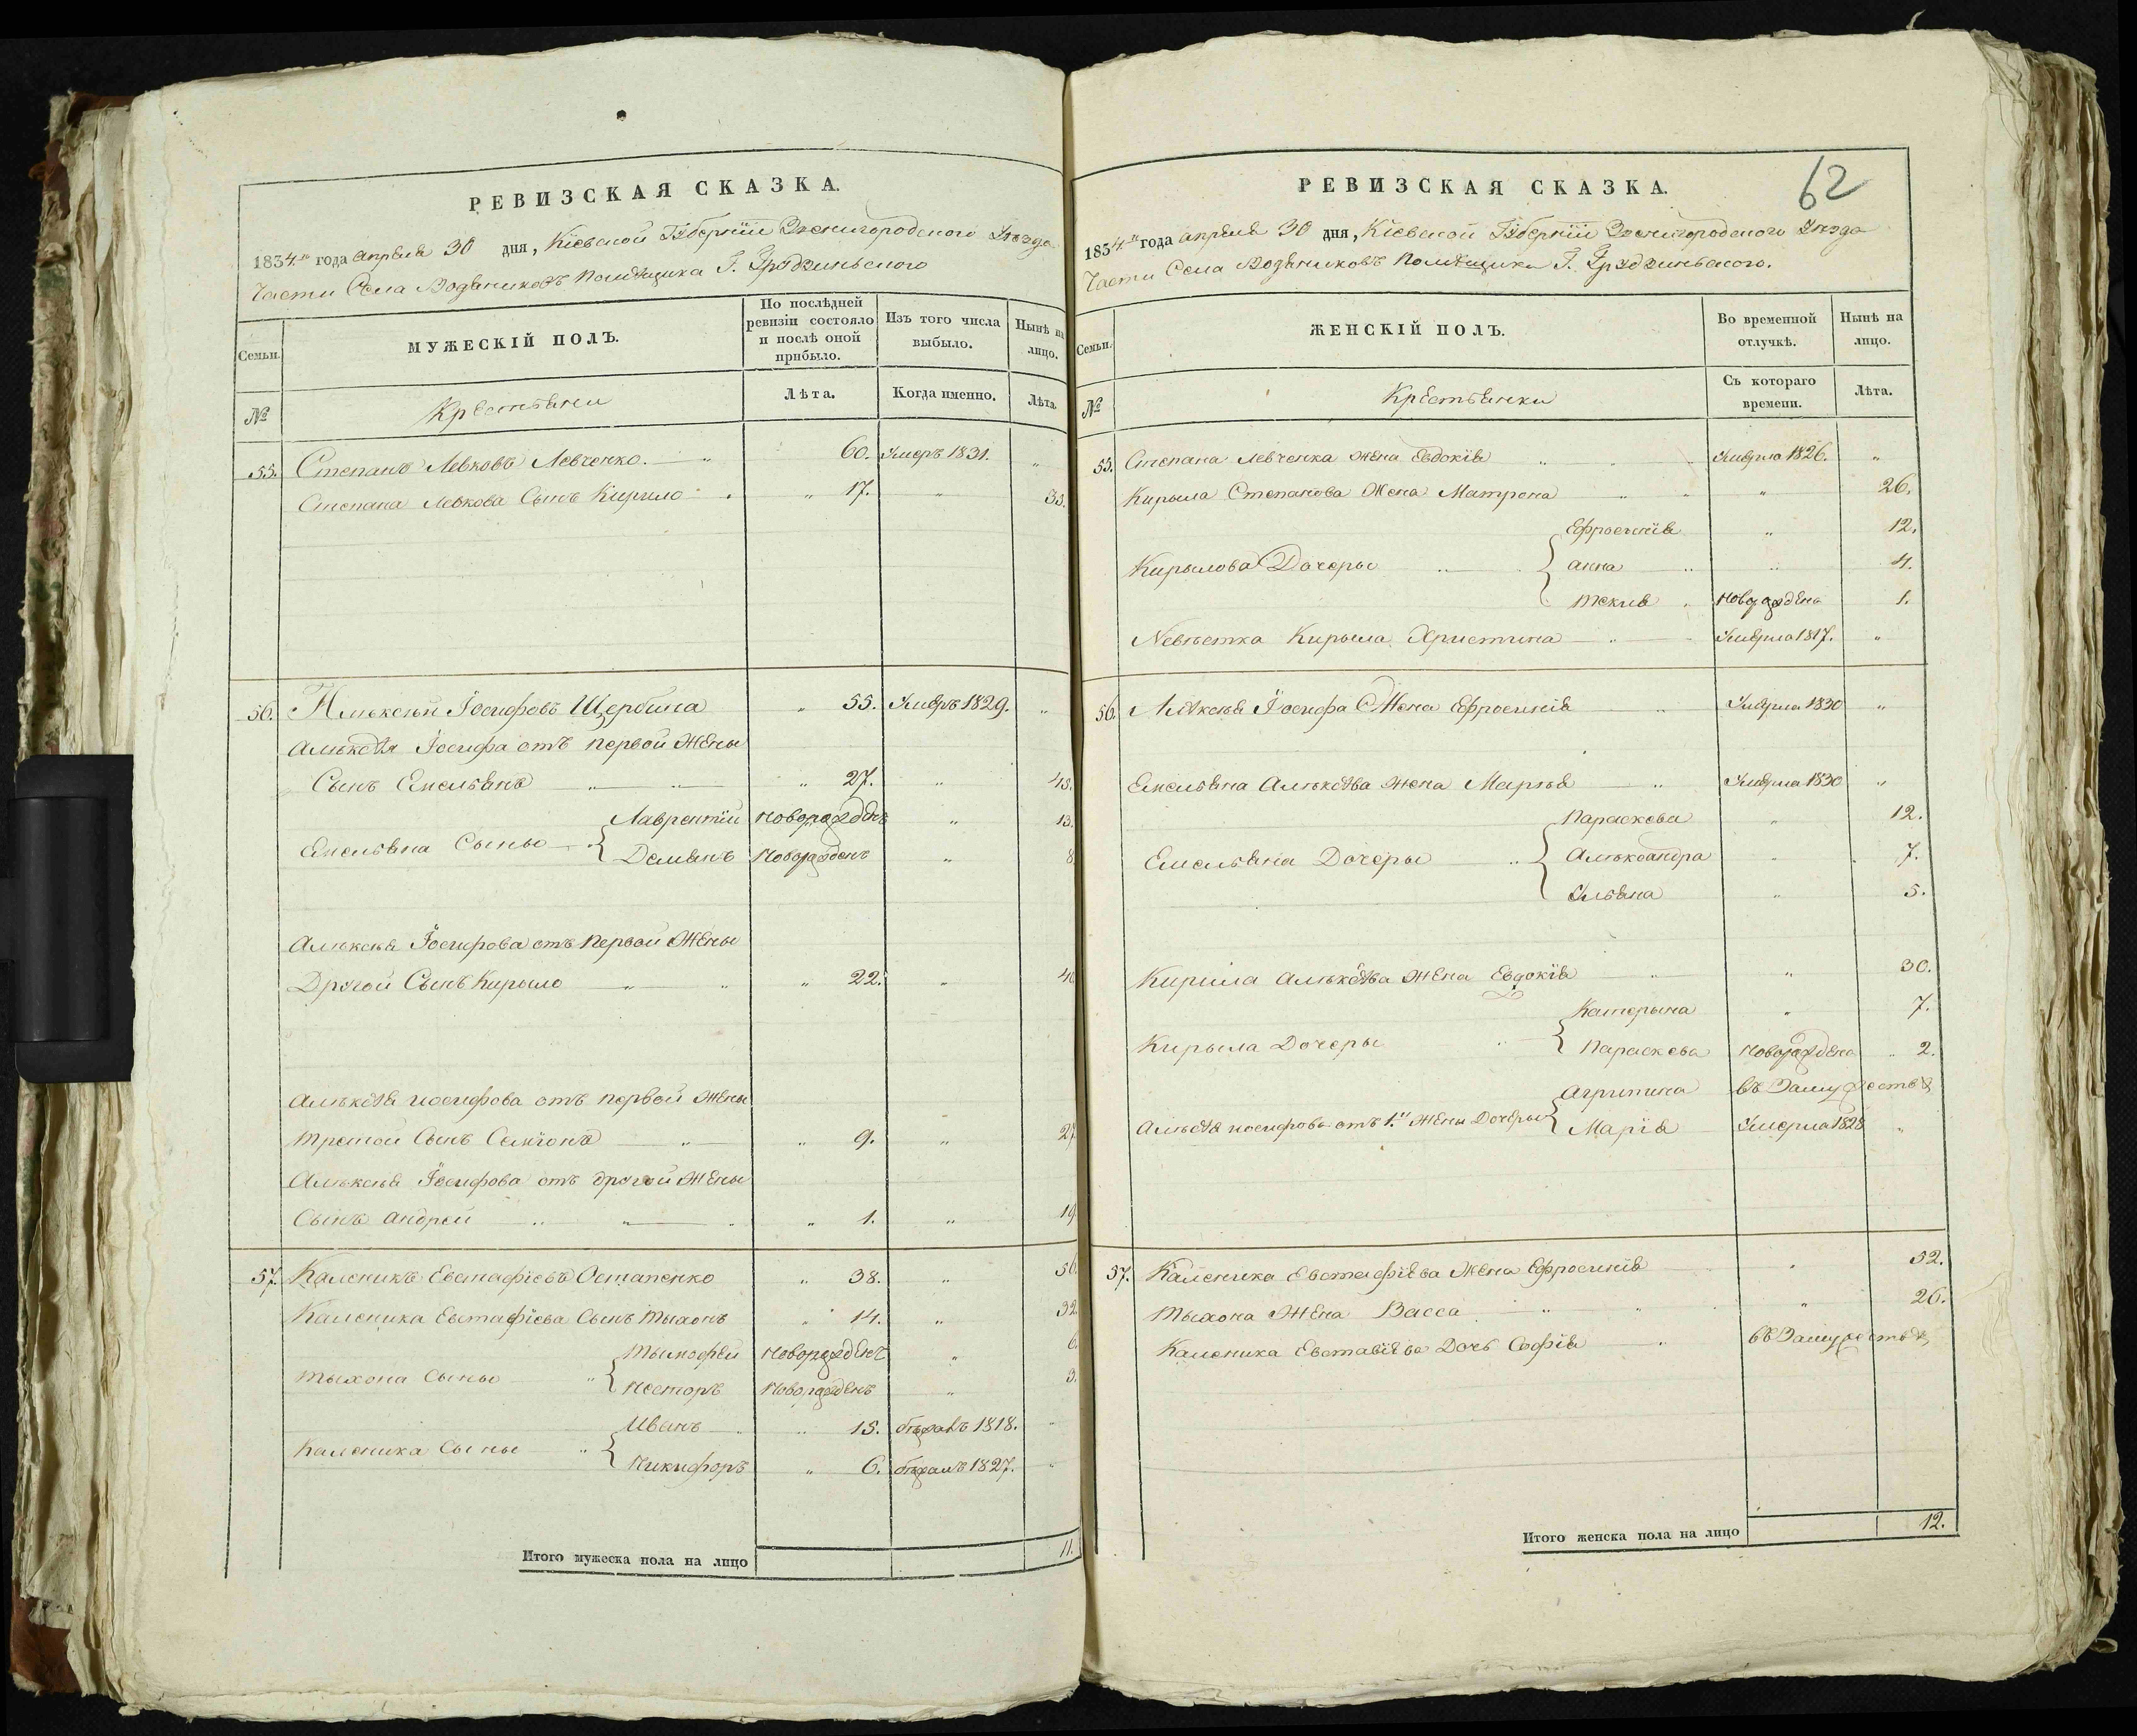 РЕВИЗСКАЯ СКАЗКА.
1834го года апреля 30 дня, Кіевской Губерніи Звенигородского Уезда
Части Села Водяниковъ Помѣщика Г. Грудзиньского
Семьи.
МУЖЕСКІЙ ПОЛЪ.
По послѣдней ревизіи состояло и послѣ оной прибыло.
Изъ того числа выбыло.
Нынѣ на лицо.
№
Крестьяни
Лѣта.
Когда именно.
Лѣта.
55. Степанъ Левковъ Левченко. 60. Умеръ 1831. "
Степана Левкова Сынъ Кирило " 17. " 33.
56. Алѣксѣй Іосифовъ Щербина " 55. Умеръ 1829. "
Алѣксѣя Іосифа отъ первой Жены
Сынъ Емельянъ " 27. " 43.
Емельяна Сыны { Лаврентій новорожденъ " 13.
Демянъ Новорожденъ " 8
Алѣксѣя Іосифова отъ первой Жены
Другой Сынъ Кирыло " 22. "
Алѣксѣя иосифова отъ первой жены
третой Сынъ Симіонъ " 9. " 27
Алѣксѣя Іосифова отъ другой Жены
Сынъ Андрей " 1. " 19
57. Каленикъ Евстафіевъ Остапенко " 38. " 56.
Каленика Евстафіева Сынъ Тыхонъ " 14. " 32.
Тыхона Сыны { Тымофей новорожденъ " 6.
Несторъ Новорожденъ " 3.
Каленика Сыны { Иванъ " 15. бѣжалъ 1818. "
Никифоръ " 6. бѣжалъ 1827. "
Итого мужеска пола на лицо 11.
62
РЕВИЗСКАЯ СКАЗКА.
1834го года апреля 30 дня, Кіевской Губерніи Звенигородского Уезда
Части Села Водяниковъ Помѣщика Г. Грудзинского.
Семьи.
ЖЕНСКІЙ ПОЛЪ.
Во временной отлучкѣ.
Нынѣ на лицо.
№
Крестьянки
Съ котораго времени.
Лѣта.
55. Степана Левченка жена Евдокія Умерла 1826. "
Кирыла Степанова Жена Матрона " 26.
Ефросинія " 12.
Кирылова Дочеры { Анна " 4.
Текля новорождена 1.
Невѣстка Кирыла Христина Умерла 1817. "
56. Алѣксѣя Іосифа Жена Ефросинія Умерла 1830 "
Емельяна Алѣксѣева жена Марья Умерла 1830 "
Параскева " 12.
Емельяна Дочеры { Алѣксандра " 7.
Ульяна " 5.
Кирила Алѣксѣева жена Евдокія " 30.
Катерына " 7.
Кирыла Дочеры { Параскева новорождена 2.
Агрипина въ Замужествѣ
Алѣксѣя иосифова отъ 1й Жены Дочеры { Марія Умерла 1828 "
57. Каленика Евстафіева Жена Ефросинія " 52.
Тыхона Жена Васса " 26.
Каленика Евставіева Дочь Софія въ Замужествѣ
Итого женска пола на лицо 12.